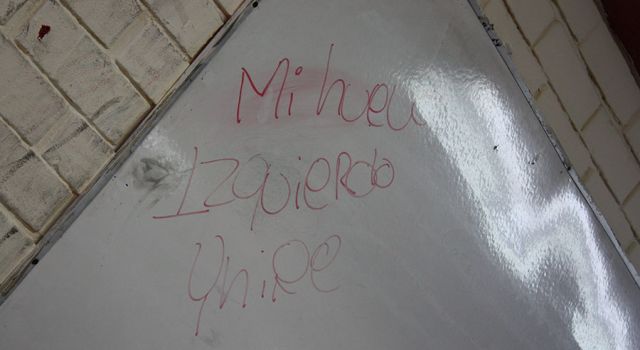 Mi huevo
Izquierdo
Yniee